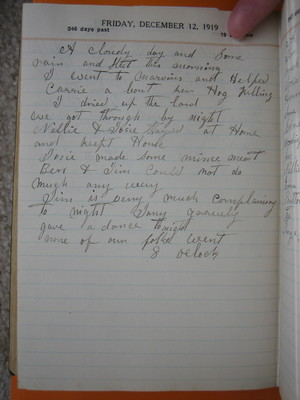 FRIDAY, DECEMBER 12, 1919
346 days past
19
A cloudy day and Some
rain and this morning
I went to Marvins and Helped
Carrie a bout her Hog Killing
I dried up the lard
we got through by night
Nellie & Josie Stayed at Home
and kept House
Josie made some mince meat
Bert & Jim Could not do
much any way
Jim is very much complaining
to night
gave a dance tonight
none of our folks went
8 oclock